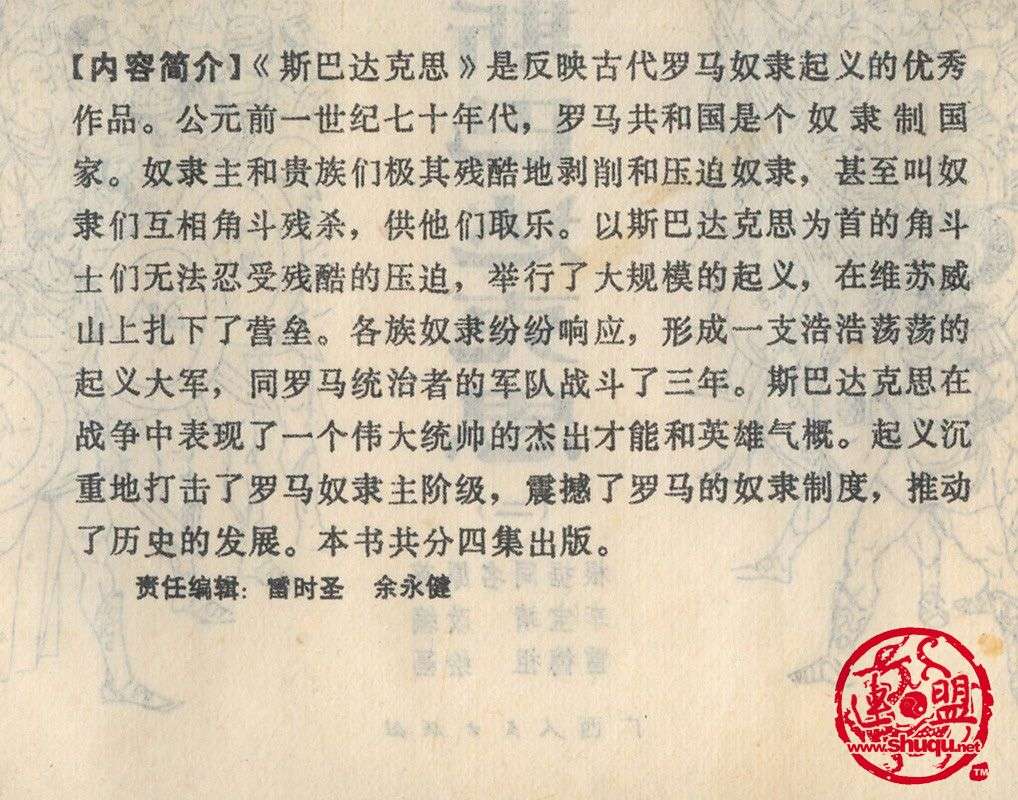 【内容简介】《斯巴达克思》是反映古代罗马奴隶起义的优秀
作品。公元前一世纪七十年代，罗马共和国是个奴隶制国
家。奴隶主和贵族们极其残酷地剥削和压迫奴隶，甚至叫奴
隶们互相角斗残杀，供他们取乐。以斯巴达克思为首的角斗
士们无法忍受残酷的压迫，举行了大规模的起义，在维苏威
山上扎下了营垒。各族奴隶纷纷响应，形成一支浩浩荡荡的
起义大军，同罗马统治者的军队战斗了三年。斯巴达克思在
战争中表现了一个伟大统帅的杰出才能和英雄气概。起义沉
重地打击了罗马奴隶主阶级，震撼了罗马的奴隶制度，推动
了历史的发展。本书共分四集出版。
责任编辑：雷时圣 余永健
連盟
www.shuqu.net
TM